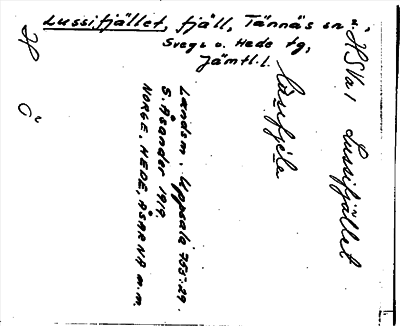 Lussifjället, fjäll, Tännäs sn?,
Svegs o. Hede tg,
Jämtl.l.
HSVa1 Lussifjället
lusifjela
Landsm. Uppsala 755:29.
S. Åsander 1919.
NORGE, HEDE, ÅSARNA m.m.